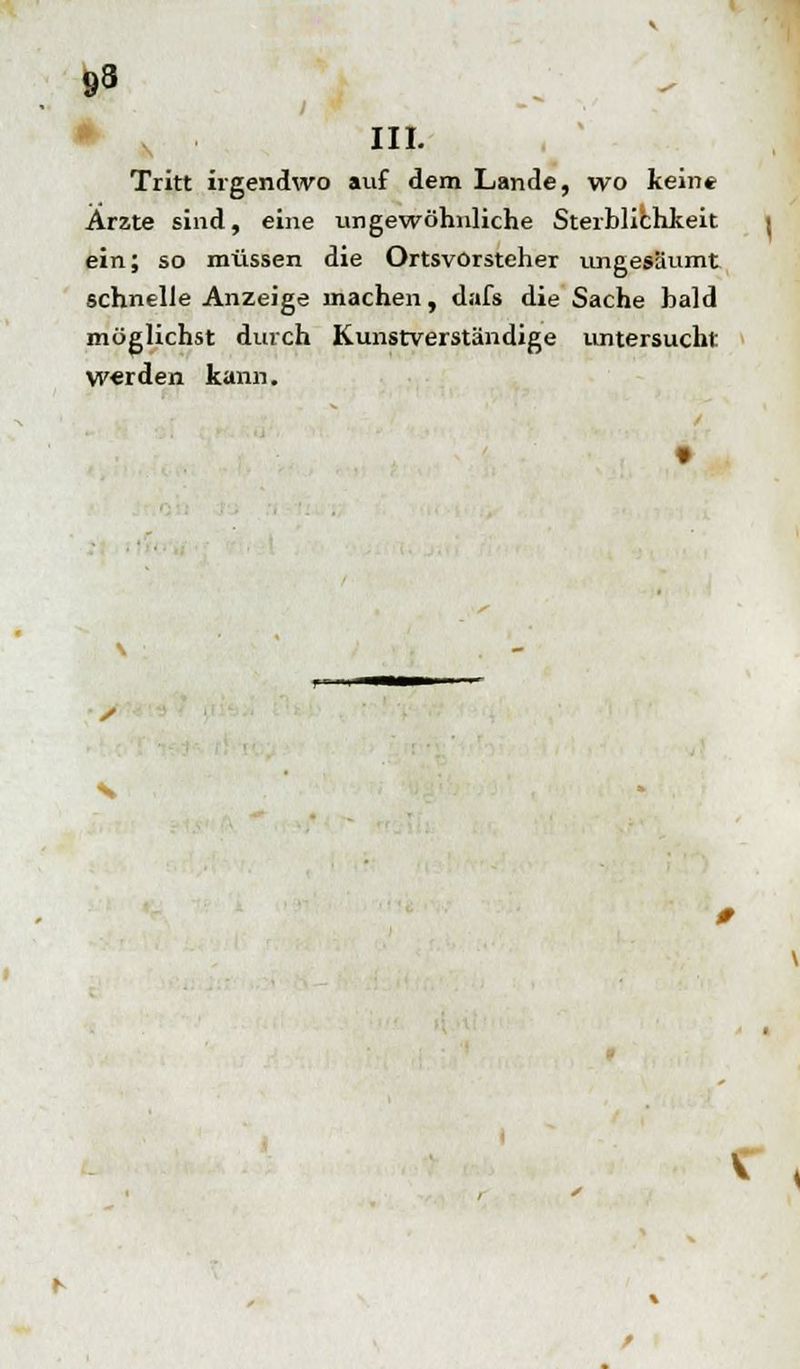 98
III.
Tritt irgendwo auf dem Lande, wo keine
Ärzte sind, eine ungewöhnliche Sterblichkeit
ein; so müssen die Ortsvorsteher ungesäumt
schnelle Anzeige machen, dafs die Sache bald
möglichst durch Kunstverständige untersucht
werden kann.